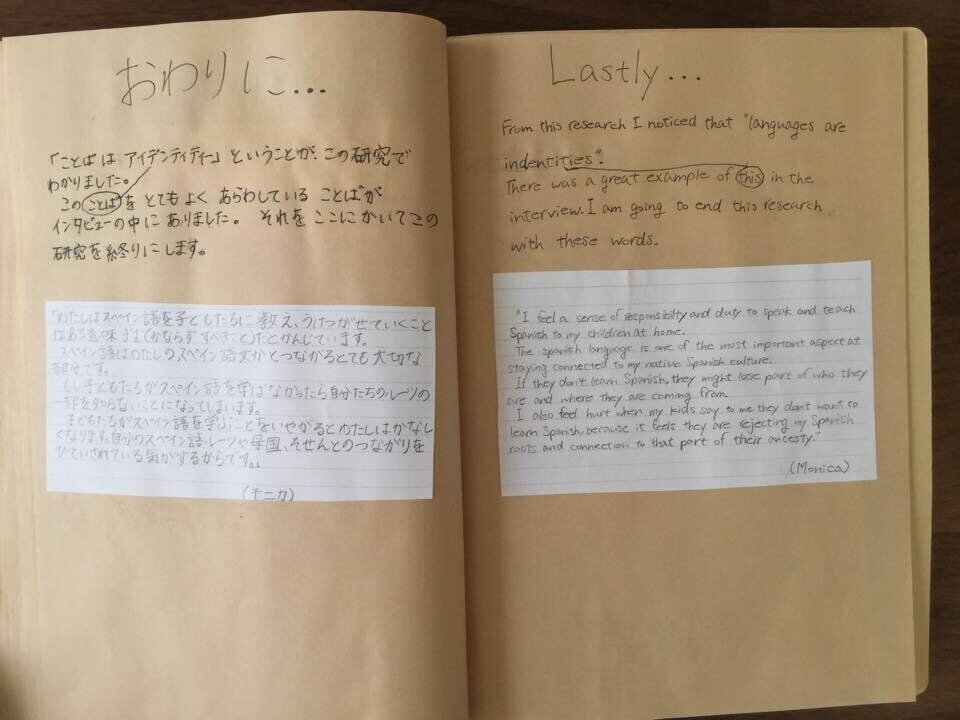 おわりに...
「ことばは アイデンティティー」ということが、この研究で
わかりました。
この ことば を とてもよく あらわしている ことばが
インタビューの中に ありました。 それを ここにかいて この
研究を終りにします。
「わたしはスペイン語を子どもたちに教え、うけつがせていくこと
たとかんじています。
スペイン語はわたしのスペイン語文かとつながるとても大切な
部分です。
もし子どもたちがスペイン語を学ばなかったら自分たちのルーツの
一部を知らないことになってしまいます。
子どもたちがスペイン語を学ぶことをいやがるとわたしはかなし
くなります。自分のスペイン語ルーツや母国、そせんとのつながりを
ひていされている気がするからです。」
(モニカ)
Lastly...
From this research I noticed that "languages are
indentities".
There was a great example of this in the
interview. I am going to end this research
with these words.
"I feel a sense of responsibilty and duty to speak and teach
Spanish to my children at home.
The spanish language is one of the most important aspect at
staying connected to my native Spanish culture.
If they don't learn Spanish, they might lose part of who they
are and where they are coming from.
I also feel hurt when my kids say to me they don't want to
learn Spanish, because it feels they are rejecting my Spanish
roots and connection to that part of their ancesty."
(Monica)